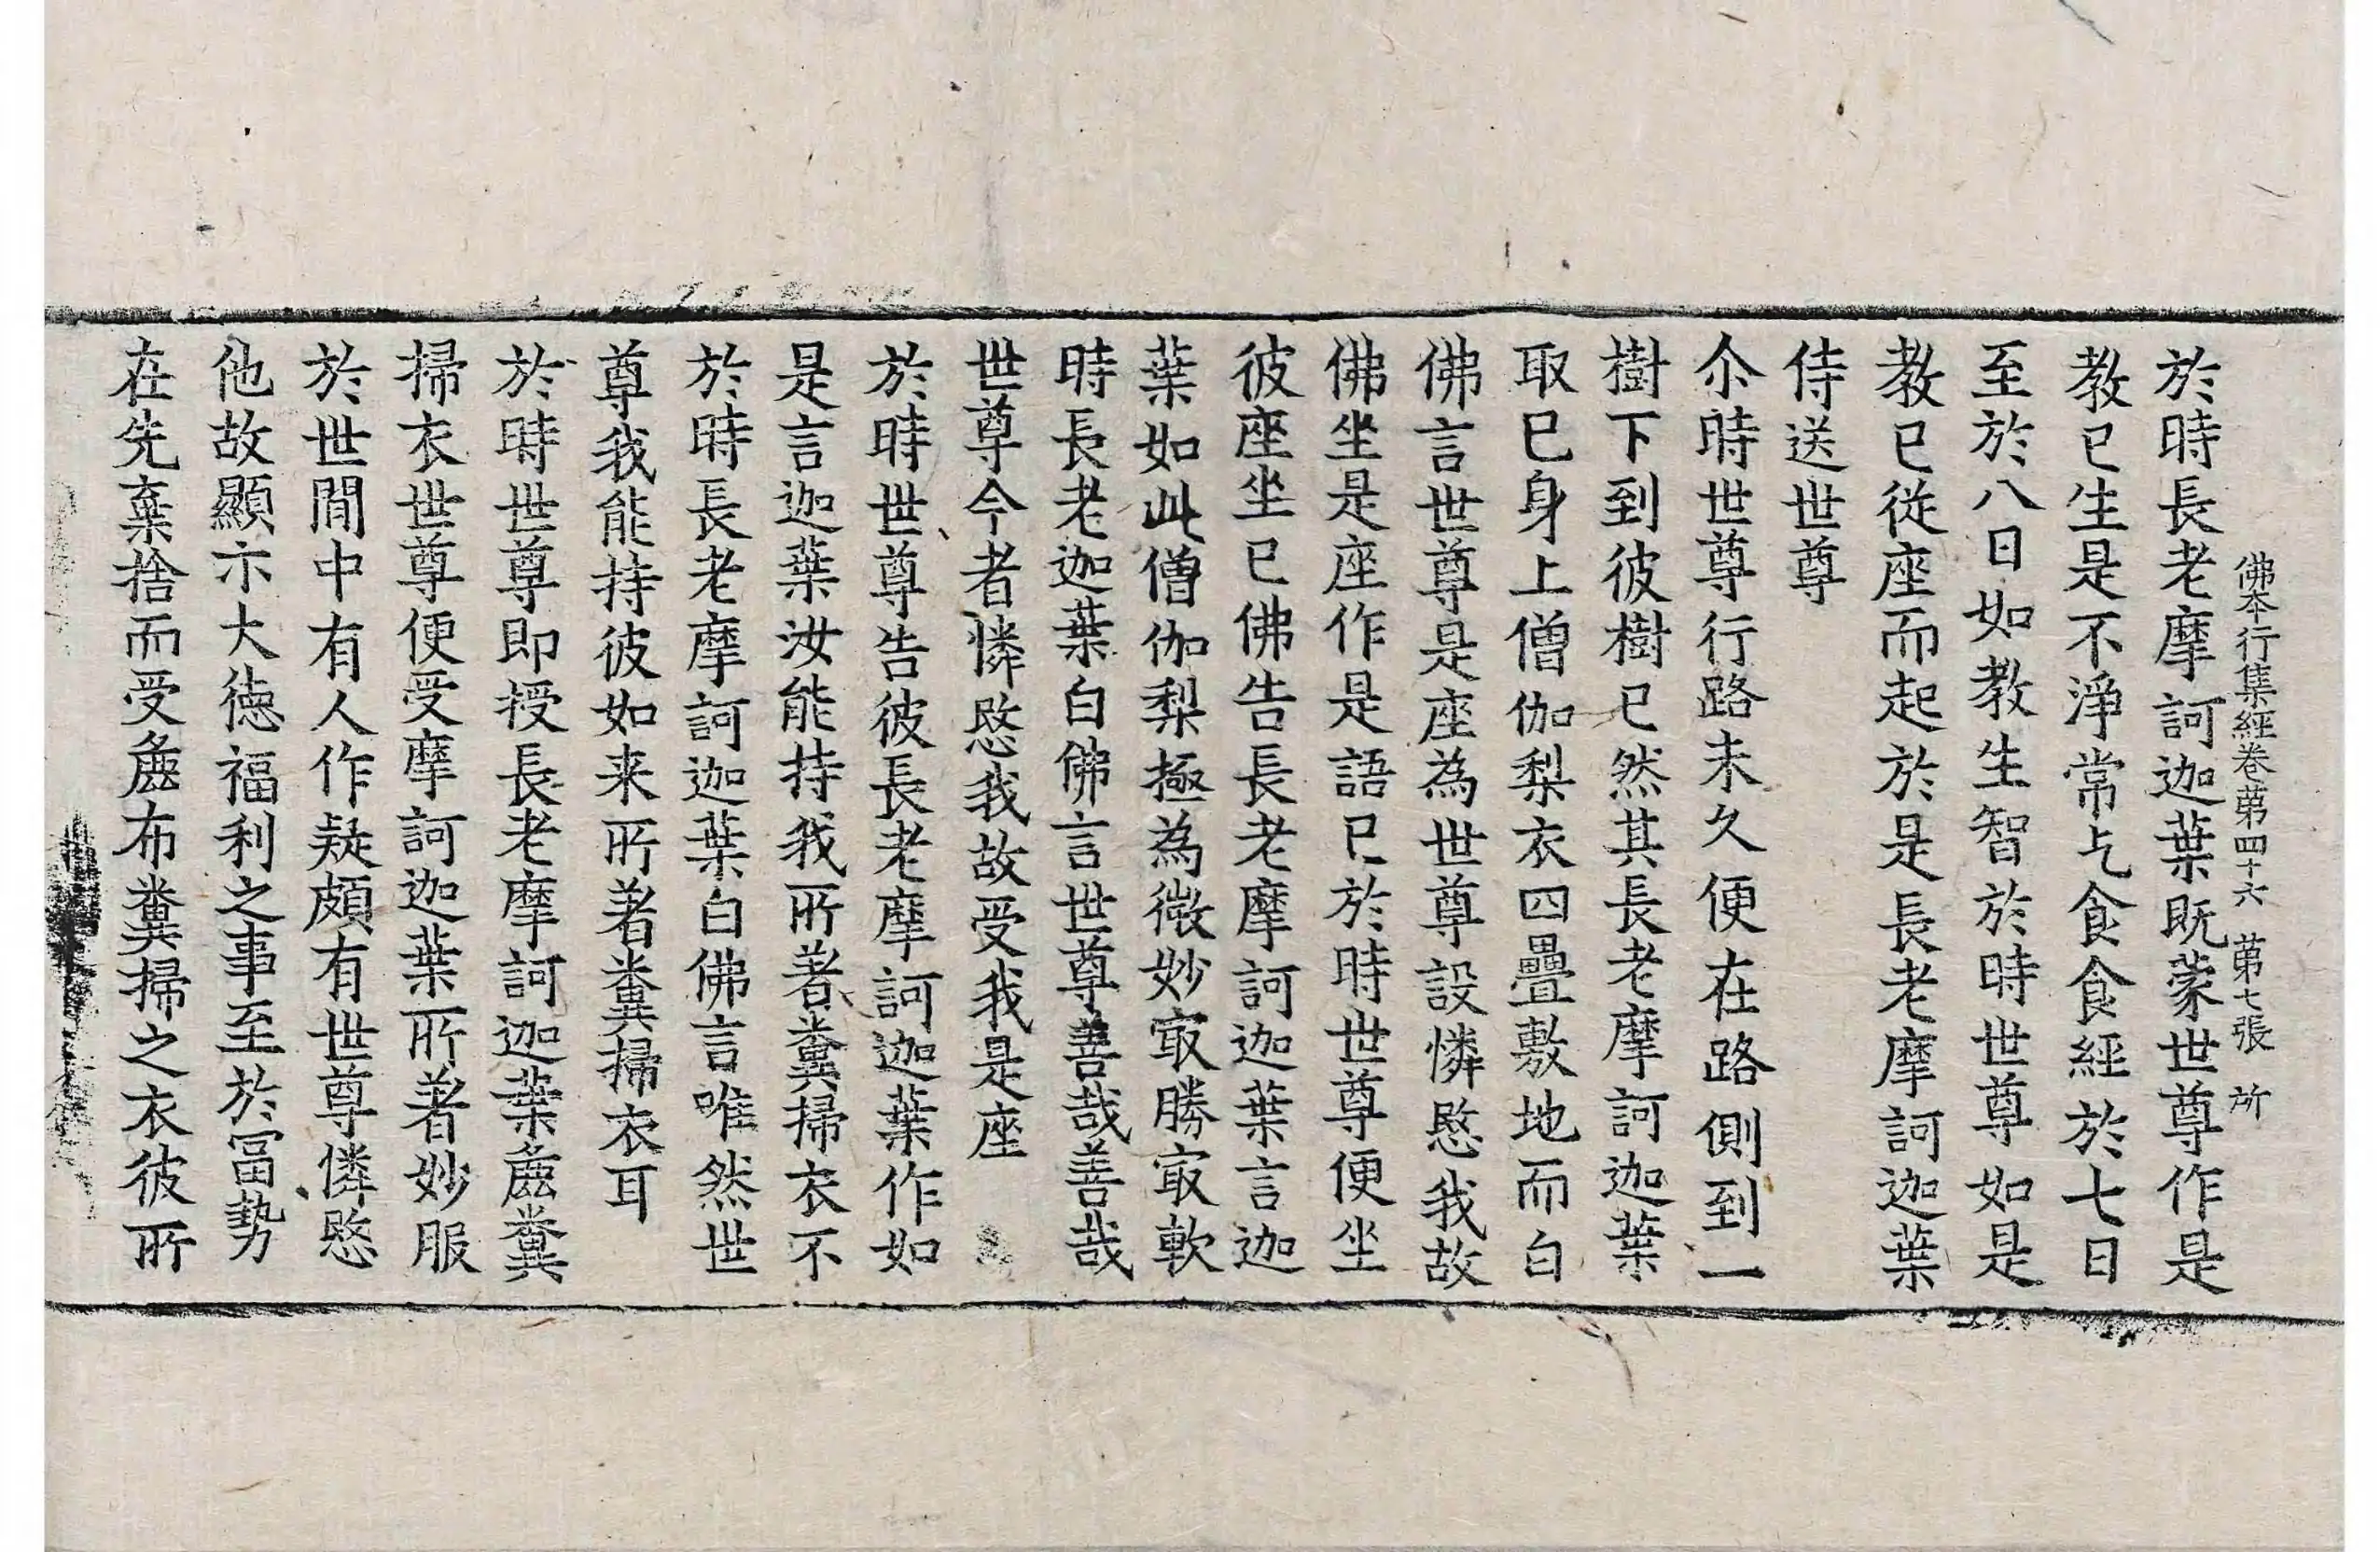 佛本行集經卷苐四十六 苐七張 所
於時長老摩訶迦葉既蒙世尊作是
教已生是不淨常乞食食經於七日
至於八日如教生智於時世尊如是
教已從座而起於是長老摩訶迦葉
侍送世尊
尒時世尊行路未久便在路側到一
樹下到彼樹已然其長老摩訶迦葉
取已身上僧伽梨衣四疊敷地而白
佛言世尊是座為世尊設憐愍我故
佛坐是座作是語已於時世尊便坐
彼座坐已佛告長老摩訶迦葉言迦
葉如此僧伽梨極為微妙㝡勝㝡軟
時長老迦葉白佛言世尊善哉善哉
世尊今者憐愍我故受我是座
於時世尊告彼長老摩訶迦葉作如
是言迦葉汝能持我所著糞掃衣不
於時長老摩訶迦葉白佛言唯然世
尊我能持彼如来所著糞掃衣耳
於時世尊即授長老摩訶迦葉麁糞
掃衣世尊便受摩訶迦葉所著妙服
於世間中有人作疑頗有世尊憐愍
他故顯示大德福利之事至於冨勢
在先棄捨而受麁布糞掃之衣彼所